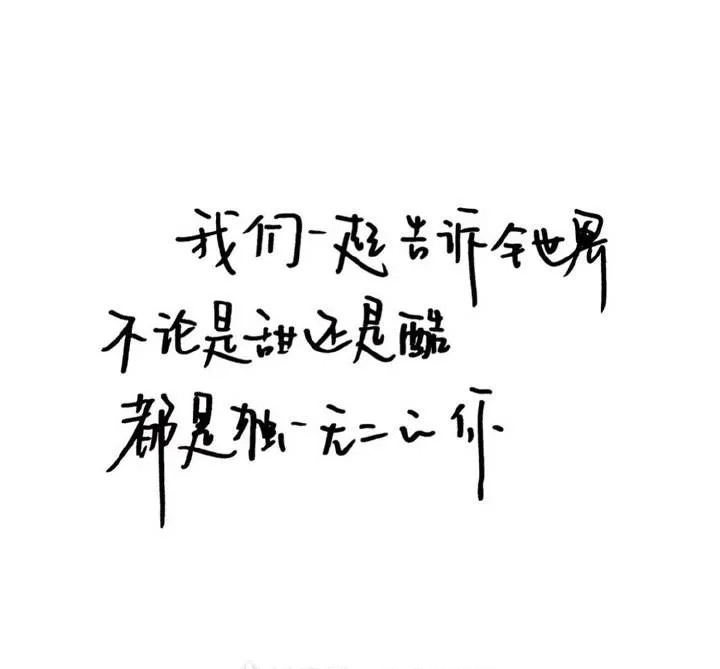 我们一起告诉全世界
不论是甜还是酷
都是独一无二的你